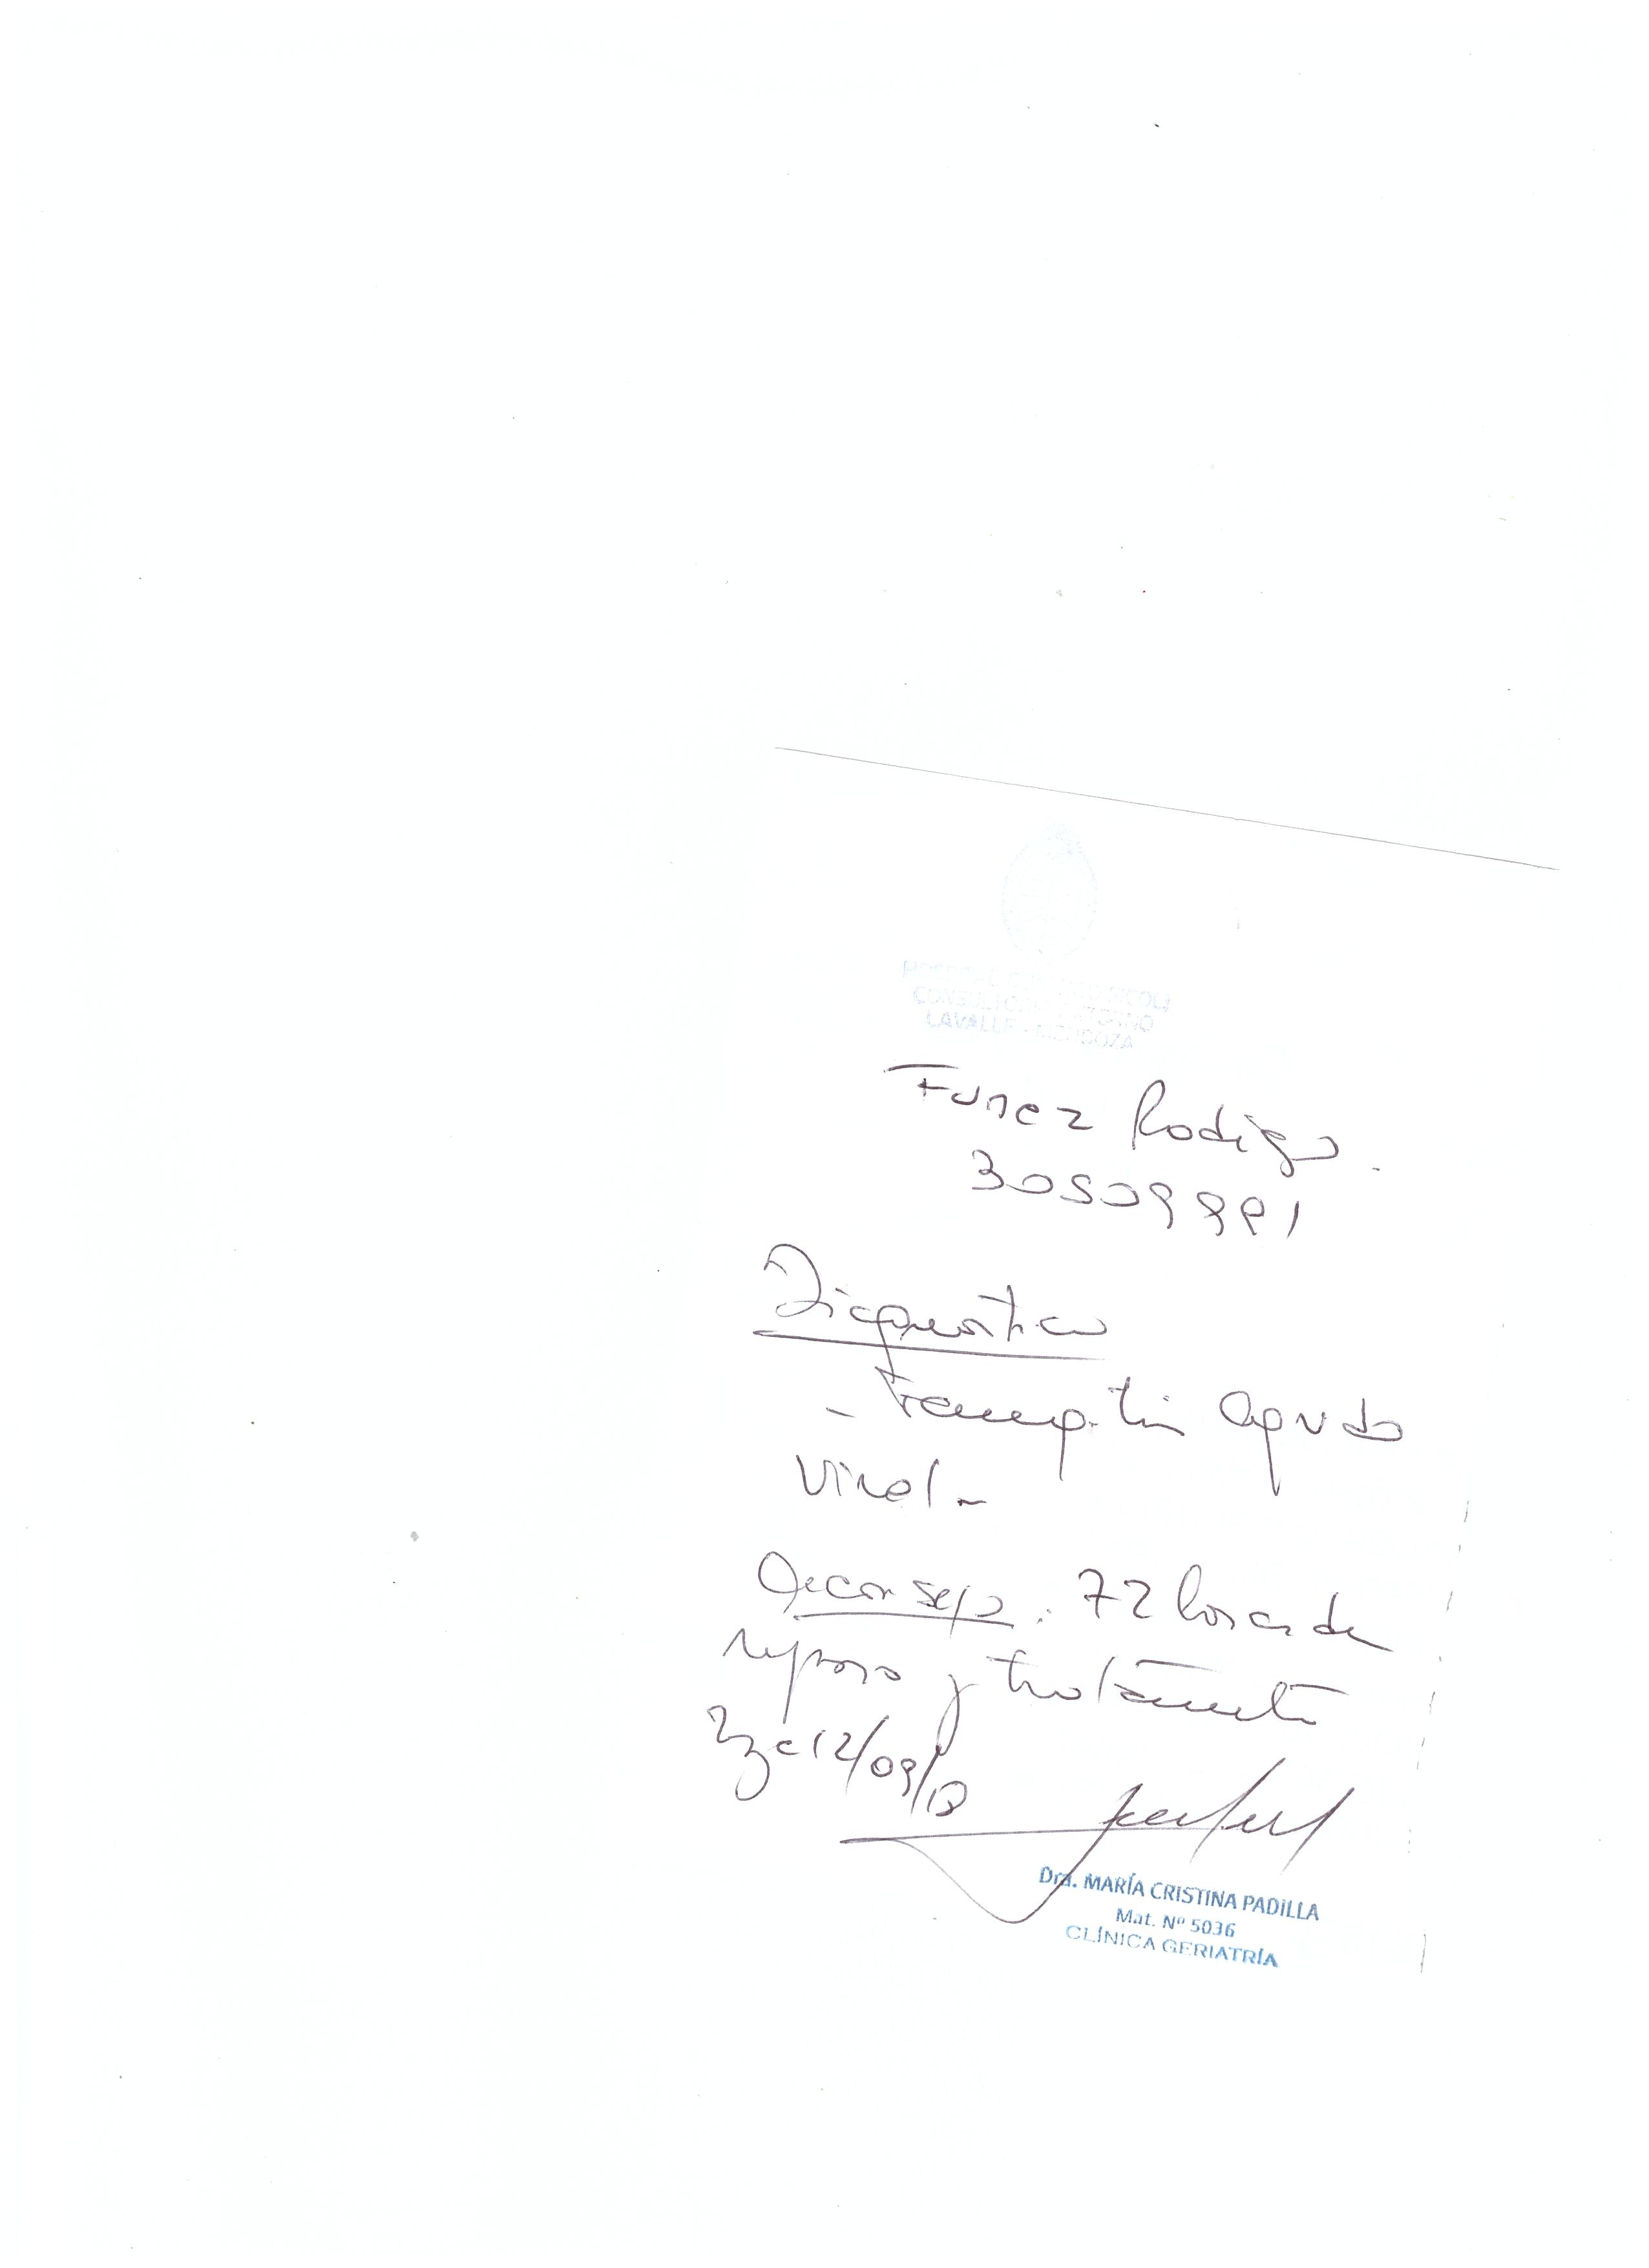 HOSPITAL
CONSULTORIO EXTERNO
LAVALLE - MENDOZA
Funez Rodrigo.
30509991
Diagnostico
- Faringitis Aguda
Viral -
Aconsejo: 72 horas de
reposo y tratamiento
Mza 12/09/18
Dra. MARÍA CRISTINA PADILLA
Mat. Nº 5036
CLÍNICA GERIATRÍA